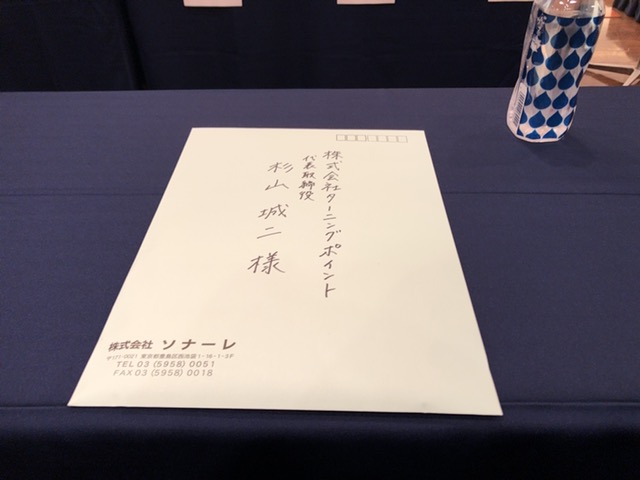 株式会社ターニングポイント
代表取締役
杉山 城二 様
株式会社 ソナーレ
〒171-0021 東京都豊島区西池袋1-16-1-3F
TEL 03 (5958) 0051
FAX 03 (5958) 0018